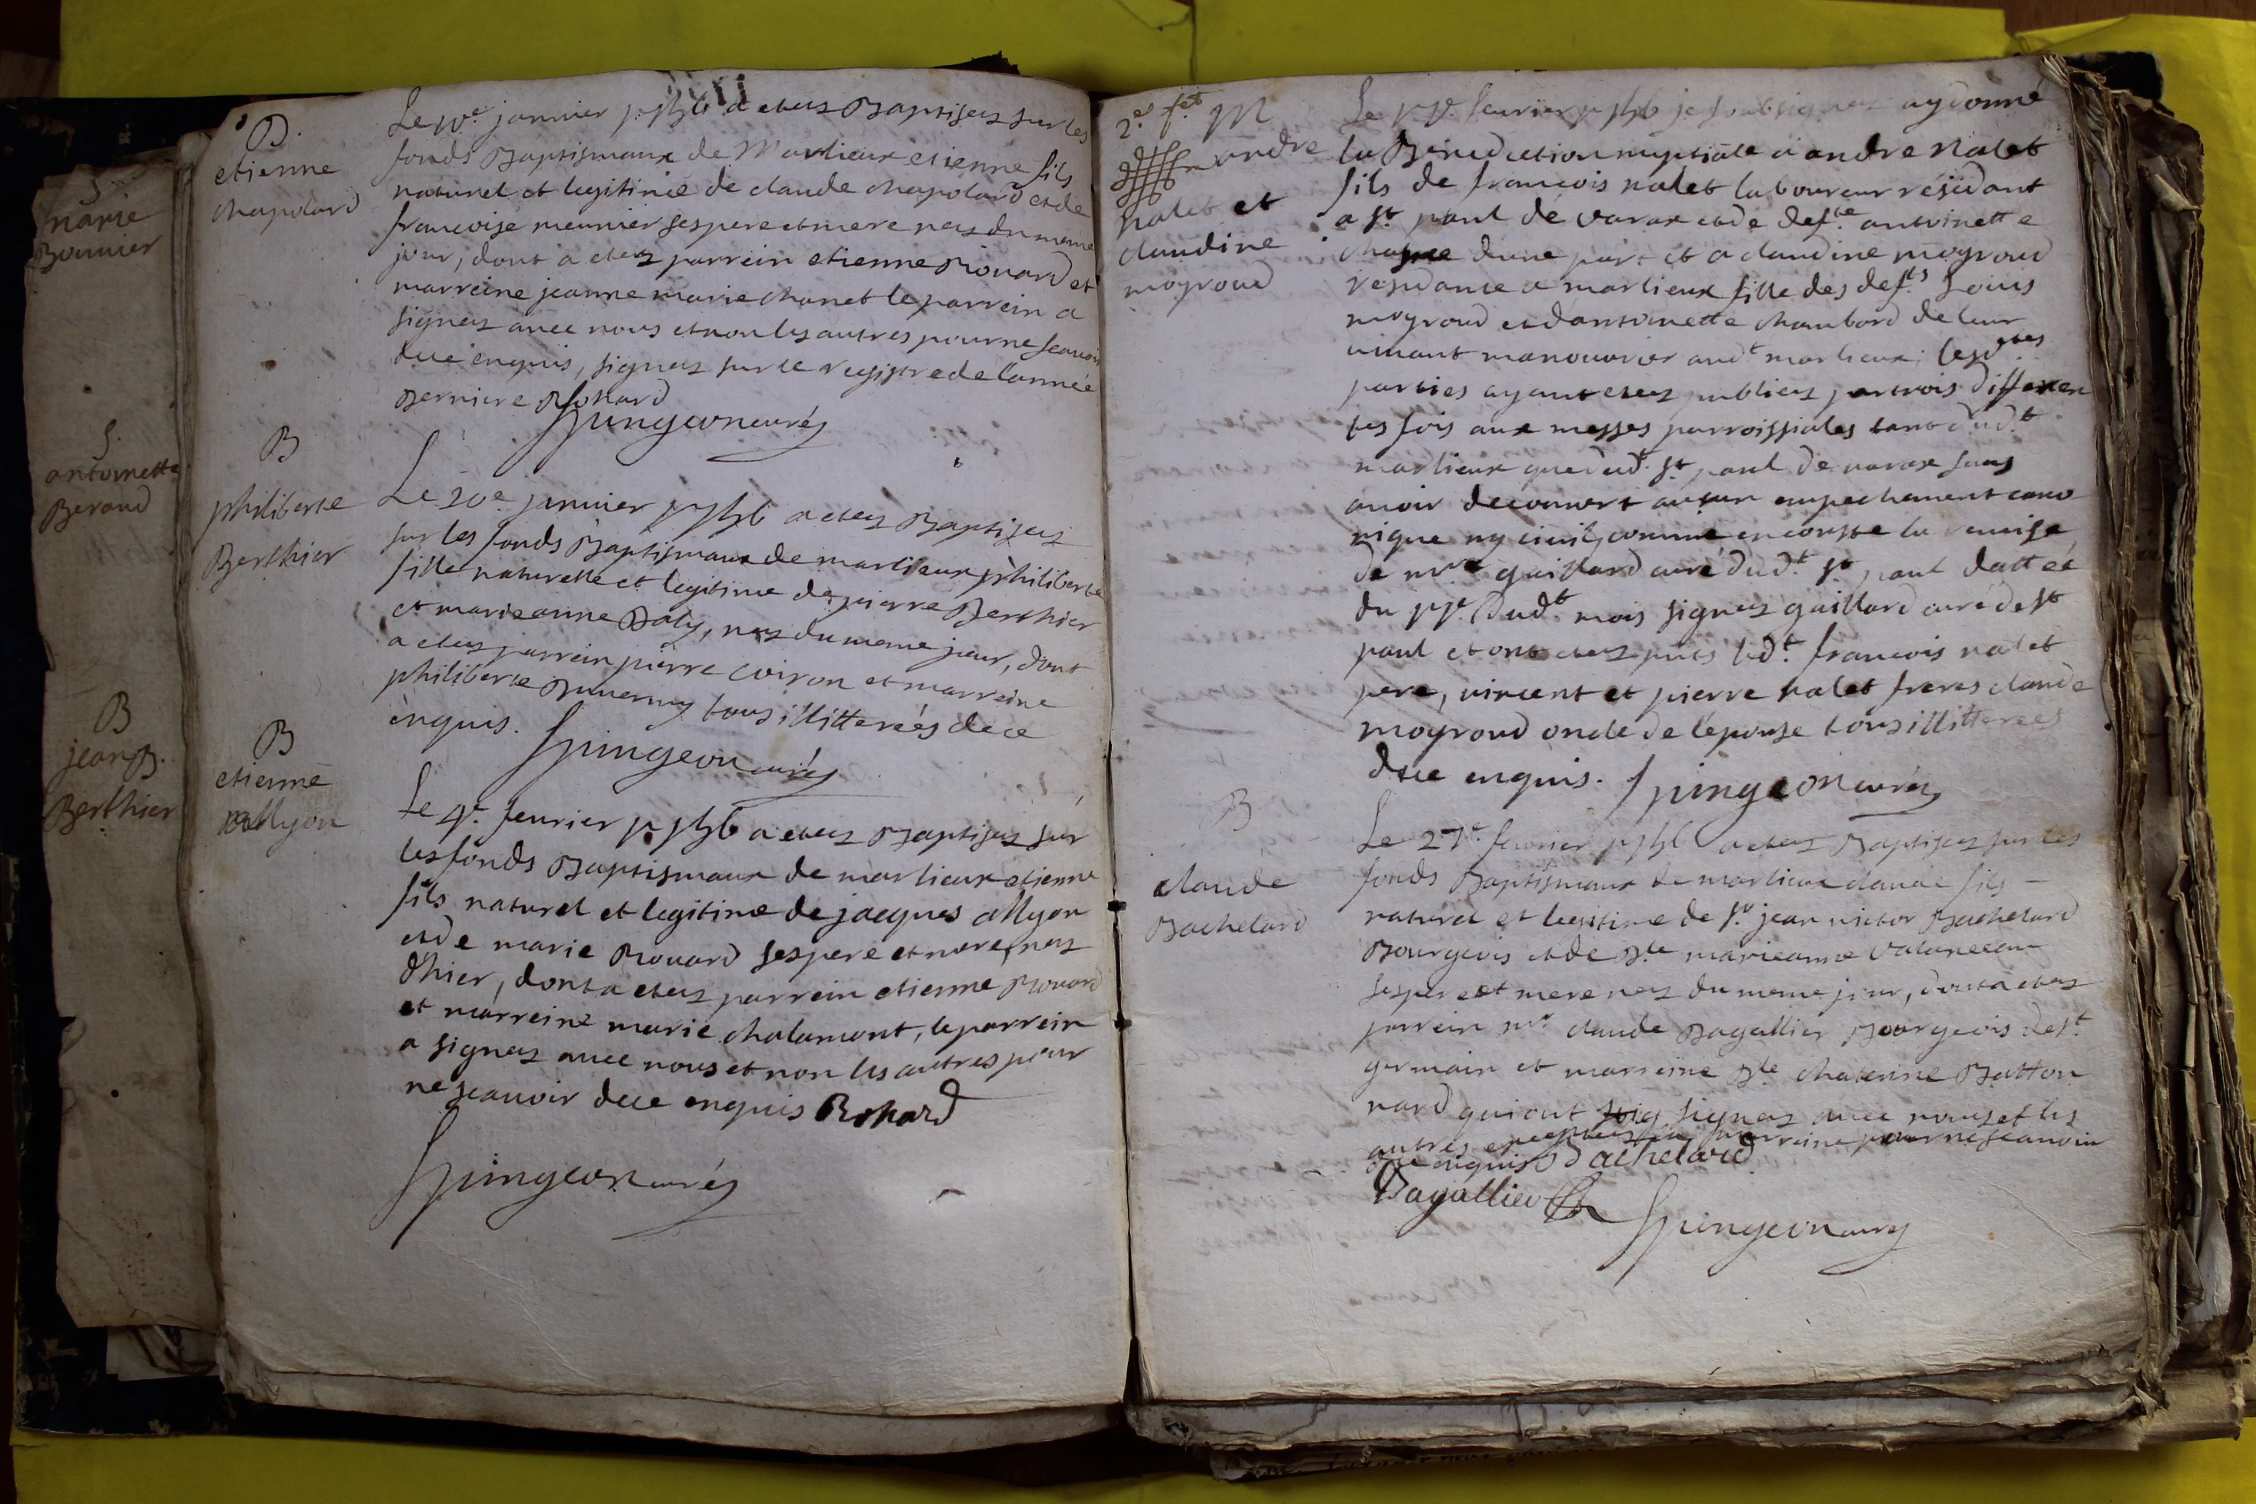 S
marie
Bonnier
S.
antoinette
Beraud
B
jean B.
Berthier
B.
etienne
chapolard
Le iv.e janvier a etez Baptisez sur les
fonds Baptismaux de Marlieux etienne fils
naturel et legitime de claude chapolard et de
francoise meunier ses pere et mere nez du meme
jour, dont a etez parrein etienne Rouard et
marreine jeanne marie chanet le parrein a
signez avec nous et non les autres pour ne scavoir
de ce enquis, signez sur le registre de l'année
Derniere Rohard
Spingeon curéz
B
philiberte
Berthier
Le 20e janvier a etez Baptisez
sur les fonds Baptismaux de marlieux philiberte
fille naturelle et legitime de pierre Berthier
et marieanne Baly, nez du meme jour, dont
a etez parrein pierre Coiron et marreine
philiberte Duverny tous illitterées de ce
enquis. Spingeon curéz
B
etienne
allyon
Le 4e. fevrier a etez Baptisez sur
les fonds Baptismaux de marlieux etienne
fils naturel et legitime de jacques allyon
et de marie Rouard ses pere et mere, nez
d'hier, dont a etez parrein etienne Rouard
et marreine marie chalamont, le parrein
a signez avec nous et non les autres pour
ne scavoir de ce enquis Rohard
Spingeon curéz
2.e f.et M
andre
nalet et
claudine
moyroud
Le fevrier je soubsignez ay donné
la Benediction nuptiale a andre nalet
fils de francois nalet laboureur résidant
a st. paul de varax et de def.te antoinette
d'une part et a claudine moyroud
residante a marlieux fille des def.ts Louis
moyroud et d'antoinette chambard de leur
vivant manouvrier aud.t marlieux: lesd.tes
parties ayant etez publiez par trois differen
tes fois aux messes parroissiales tant dud.t
marlieux que dud. st. paul de varax sans
avoir decouvert aucun empechement cano
nique ny civil, comme en conste la remise
de m.re guillard curé dud.t st. paul dattée
du dud.t mois signez guillard curé de st
paul et ont etez pnts led.t francois nalet
pere, vincent et pierre nalet freres claude
moyroud oncle de l'epouse tous illitterees
de ce enquis. Spingeon curéz
B
claude
Bachelard
Le 27e. fevrier a etez Baptisez sur les
fonds Baptismaux de marlieux claude fils
naturel et legitime de sr. jean victor Bachelard
Bourgeois et de D.lle marieanne
ses pere et mere nez du meme jour, dont a etez
parrein mr. claude Dagallier Bourgeois de st.
germain et marreine D.lle chaterine Batton
nard qui ont signez avec nous et les
autres exceptez la marreine pour ne scavoir
de ce enquis Bachelard
Dagallier
Spingeon curéz